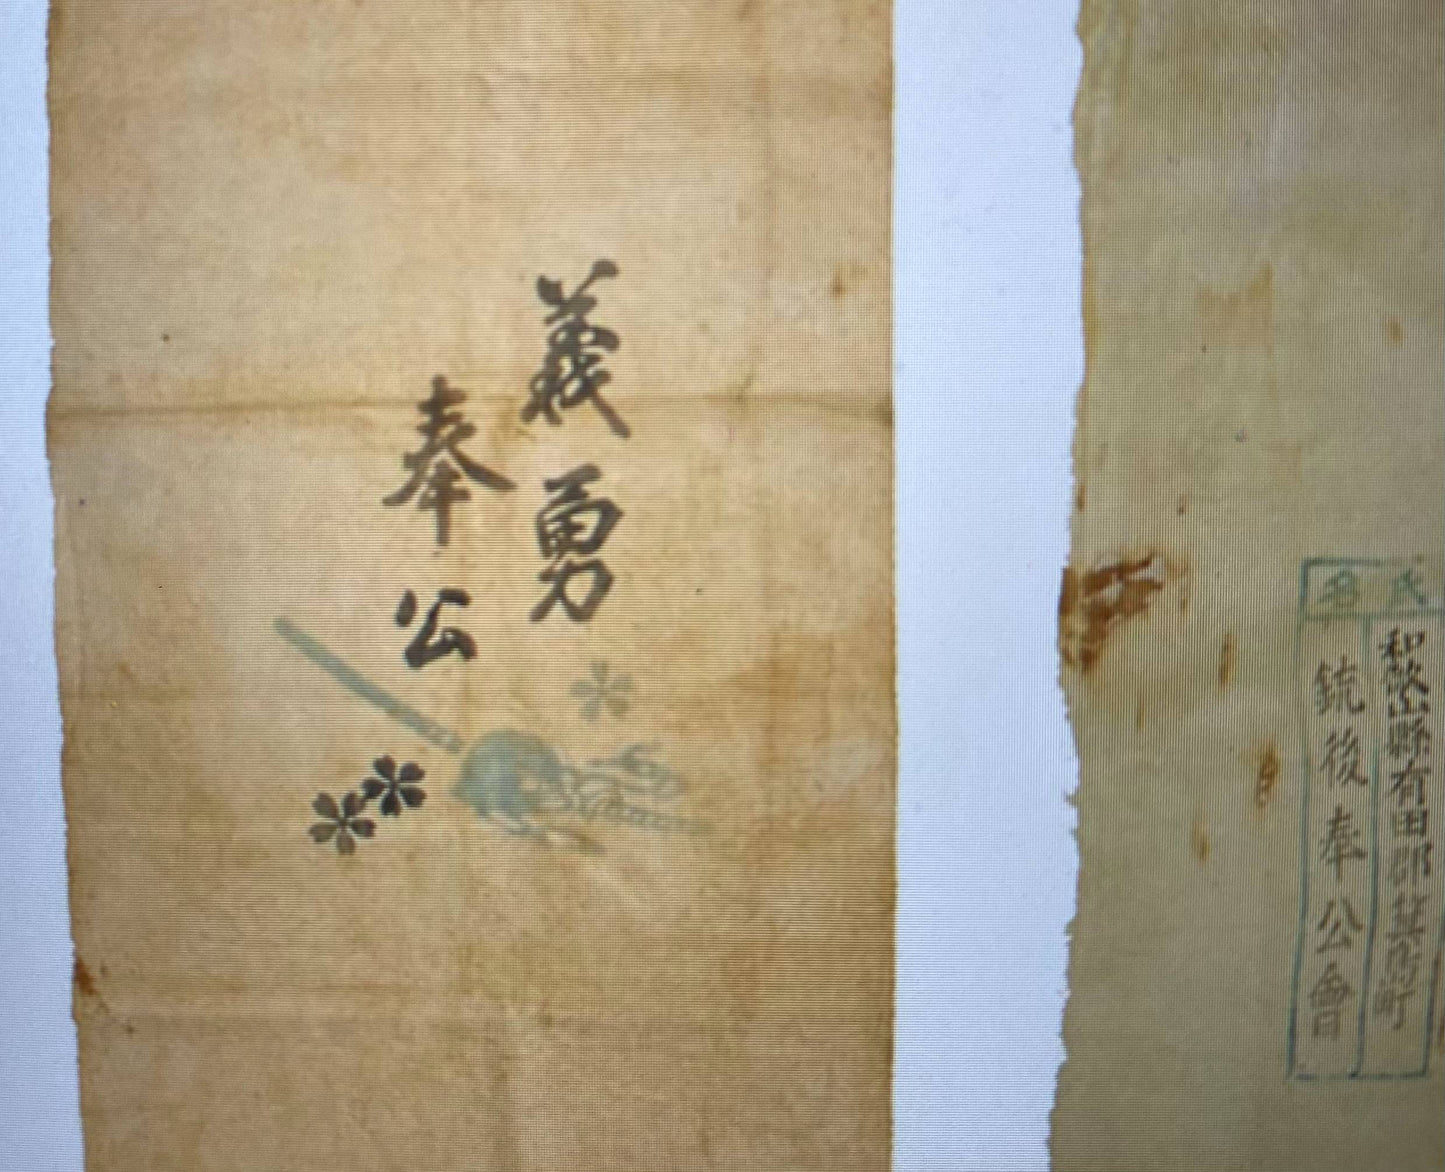 義勇
奉公
氏名
和歌山縣有田郡箕島町
銃後奉公會